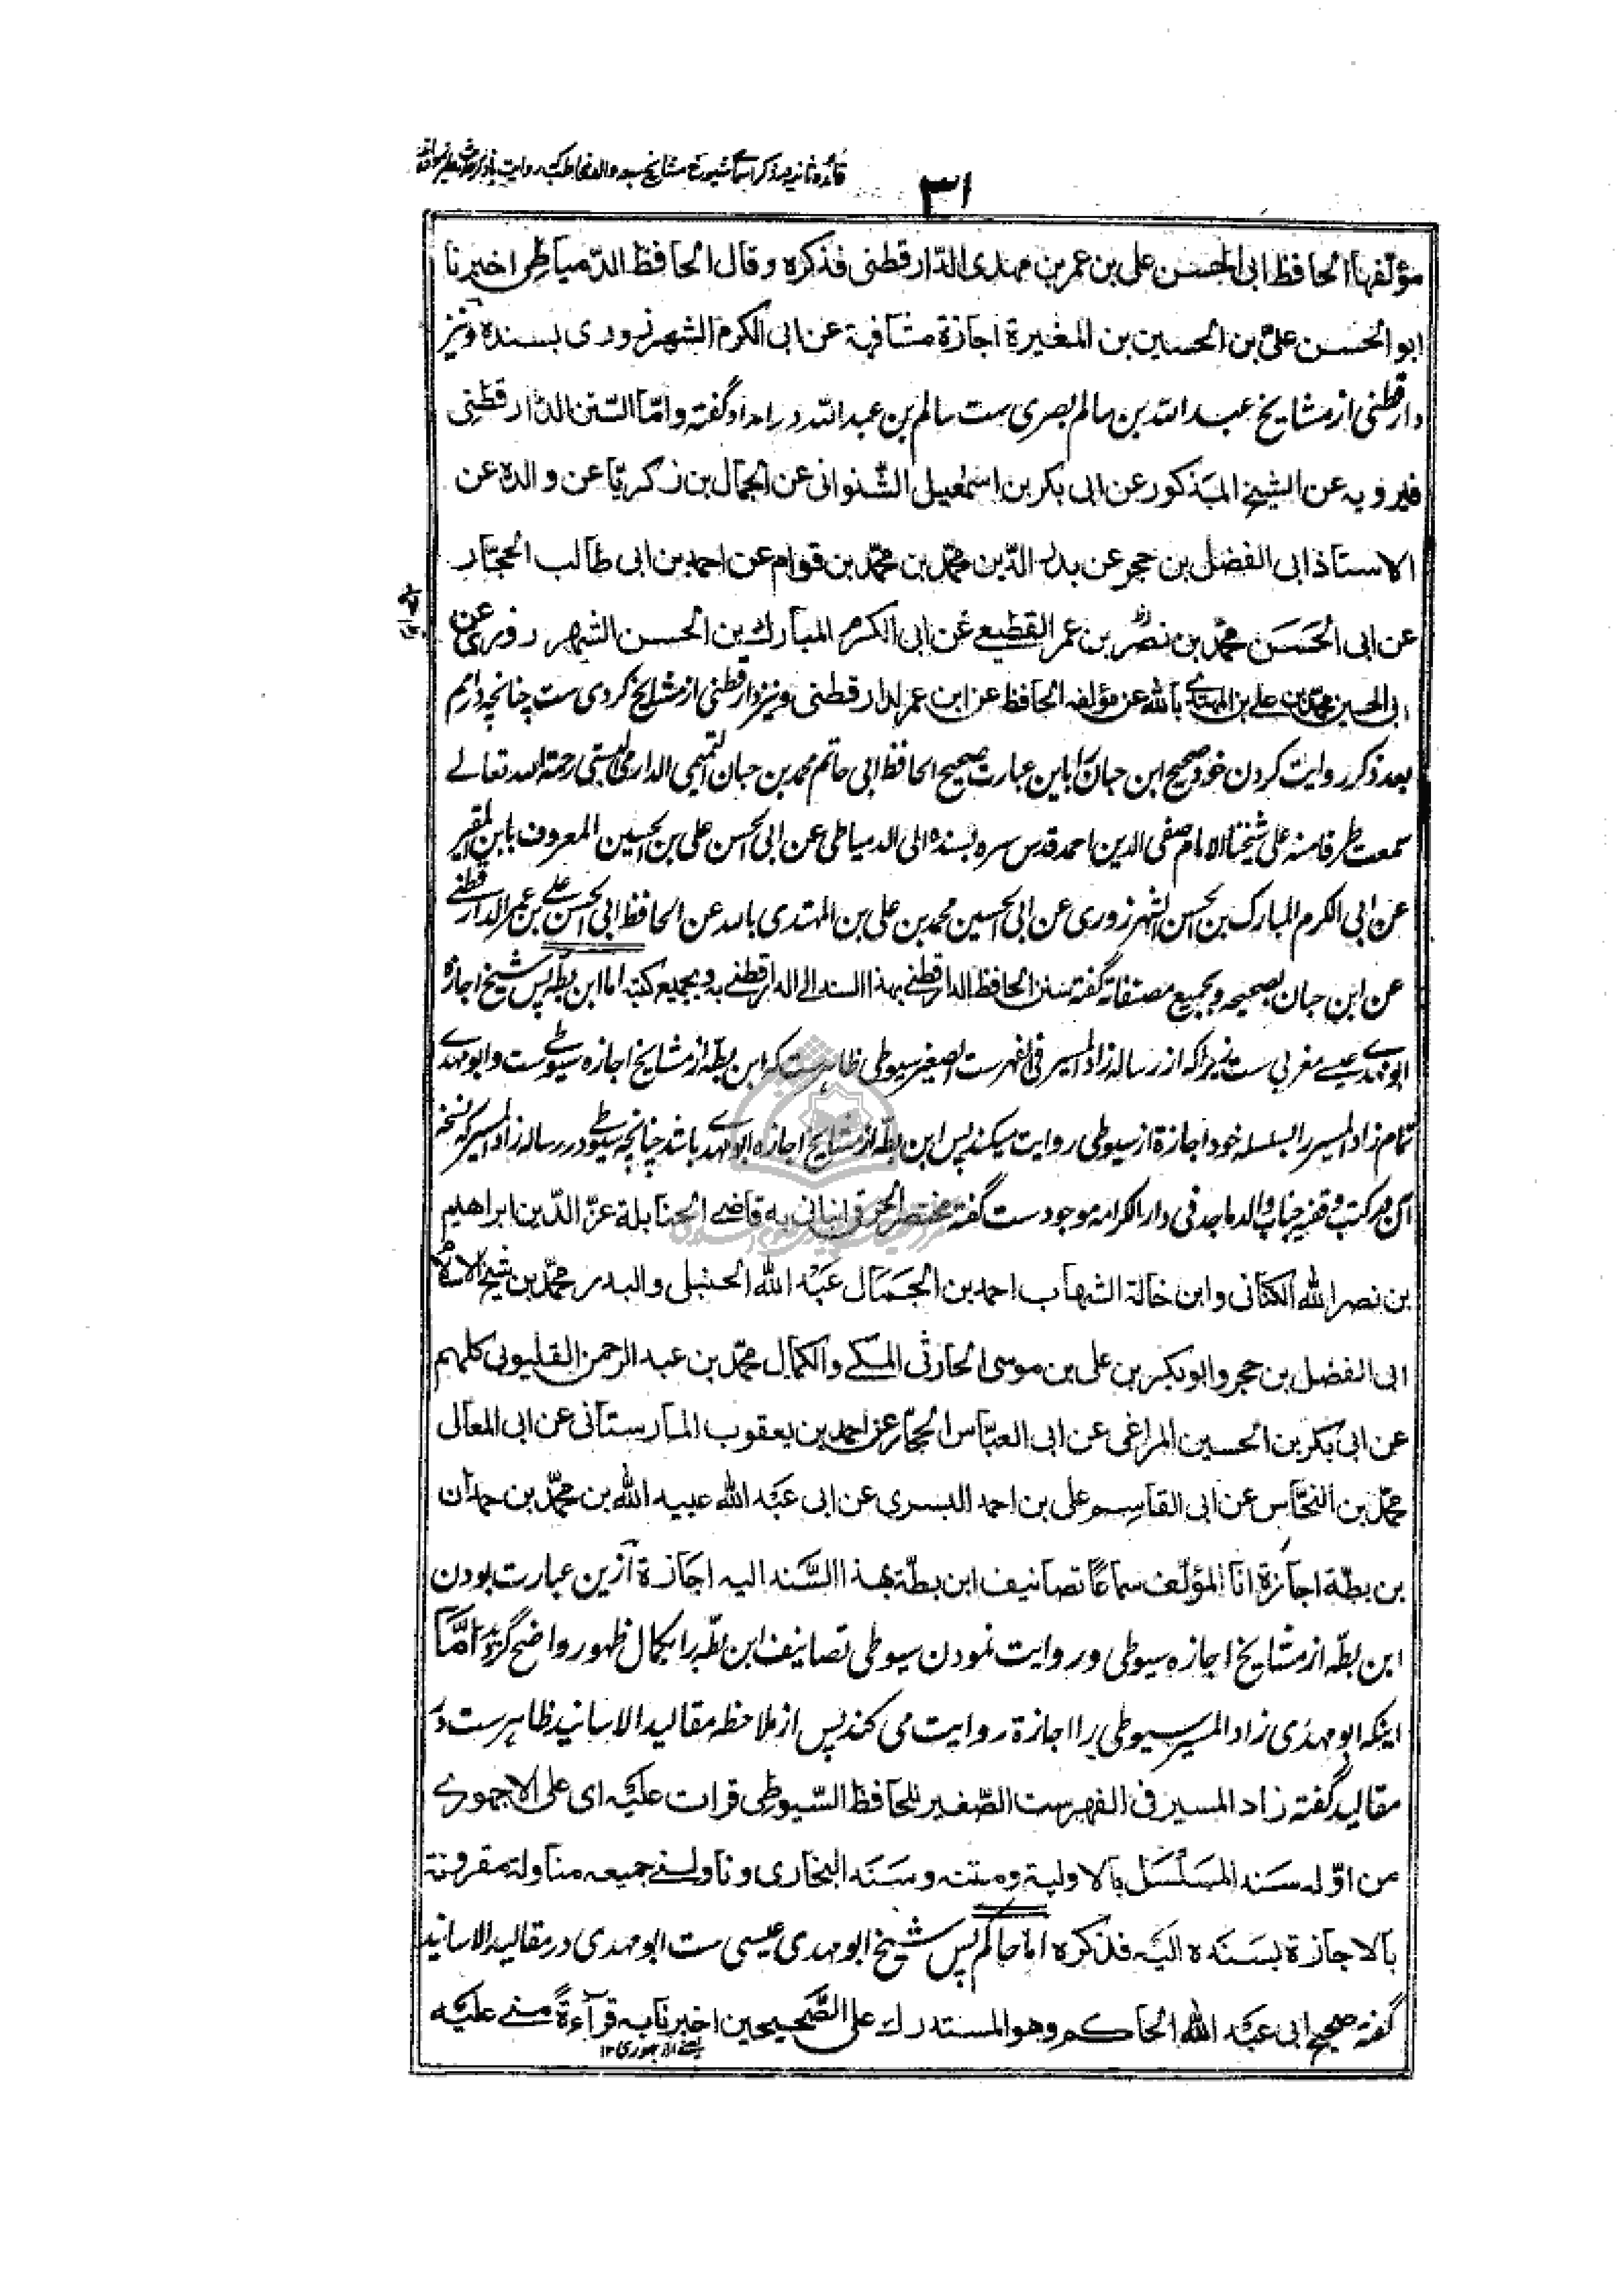 فائده ثانیه در ذکر اسمای شیوخ مشایخ سبعه والد مخاطب که روایت
۳۱
مؤلّفها الحافظ ابی الحسن علی بن عمر بن مهدی الدّارقطنی فذکره وقال الحافظ الدّمیاطی اخبرنا
ابو الحسن علیّ بن الحسین بن المغیرة اجازة مشافهة عن ابی الکرم الشهرزوری بسنده ونیز
دارقطنی از مشایخ عبد الله بن سالم بصری ست سالم بن عبد الله در امداد گفته وامّا السّنن الدّارقطنی
فیرویه عن الشیخ المذکور عن ابی بکر بن اسمٰعیل الشّنوانی عن الجمال بن زکریّا عن والده عن
الاستاذ ابی الفضل بن حجر عن بدر الدّین محمّد بن محمّد بن قوام عن احمد بن ابی طالب الحجّار
عن ابی الحَسَن محمّد بن نصر بن عمر القطیعی عن ابی الکرم المبارك بن الحسن الشهرزوری عن
ابی الحسین محمّد بن علی بن المهتدی بالله عن مؤلفه الحافظ عن ابن عمر الدارقطنی ونیز دارقطنی از مشایخ کردی ست چنانچه در امم
بعد ذکر روایت کردن خود صحیح ابن حبان را باین عبارت صحیح الحافظ ابی حاتم محمد بن حبان التمیمی الدارمی البستی رحمة الله تعالے
سمعت طرفا منه علی شیخنا الامام صفی الدین احمد قدس سره بسنده الی الدمیاطی عن ابی الحسن علی بن الحسین المعروف بابن المقیر
عن ابی الکرم المبارک بن الحسن الشهرزوری عن ابی الحسین محمد بن علی بن المهتدی بالله عن الحافظ ابی الحسن علی بن عمر الدارقطنی
عن ابن حبان بصحیحه وبجمیع مصنفاته گفته سنن الحافظ الدارقطنی بهذا السند الی الدارقطنی به وبجمیع کتبه اما ابن بطّه پس شیخ اجازه
ابو مهدی عیسے مغربی ست زیراکه از رساله زاد المسیر فی الفهرست الصغیر سیوطی ظاهرست که ابن بطّه از مشایخ اجازه سیوطی ست وابو مهدے
تمام زاد المسیر را بسلسله خود اجازة از سیوطی روایت میکند پس ابن بطّه از مشایخ اجازه ابو مهدی باشد چنانچه سیوطی در رساله زاد المسیر که نسخه
آن در کتب وقفیه جناب والد ماجد فی دار الکرامه موجودست گفته مختصر الخرقی انبانی به قاضی الحنابلة عزّ الدّین ابراهیم
بن نصر الله الکنانی وابن خالة الشهاب احمد بن الجمال عبد الله الحنبلی والبدر محمّد بن شیخ الاسلام
ابی الفضل بن حجر وابو بکر بن علی بن موسی الحارثی المکے والکمال محمّد بن عبد الرحمن القلیوبی کلهم
عن ابی بکر بن الحسین المراغی عن ابی العبّاس الحجّار عن احمد بن یعقوب المارستانی عن ابی المعالی
محمّد بن النحّاس عن ابی القاسم علی بن احمد البسری عن ابی عبد الله عبید الله بن محمّد بن حمدان
بن بطّة اجازة انا المؤلّف سماعًا تصانیف ابن بطّة بهذا السّند الیه اجازة ازین عبارت بودن
ابن بطّه از مشایخ اجازه سیوطی وروایت نمودن سیوطی تصانیف ابن بطّه را بکمال ظهور واضح گردید امّا
اینکه ابو مهدی زاد المسیر سیوطی را اجازة روایت می کند پس از ملاحظه مقالید الاسانید ظاهرست در
مقالید گفته زاد المسیر فی الفهرست الصّغیر للحافظ السّیوطی قرات علیه ای علی الاجهورے
من اوّله سند المسَلْسَل بالاولیة ومتنه وسنَد البخاری وناولنی جمیعه مناولة مقرونة
بالاجازة بسنده الیه فذکره اما حاکم پس شیخ ابو مهدی عیسی ست ابو مهدی در مقالید الاسانید
گفته صحیح ابی عبد الله الحاکم وهو المستدرك علی الصّحیحین اخبرنا به قرآءةً منے علیه
یعنے از اجهوری ۱۲